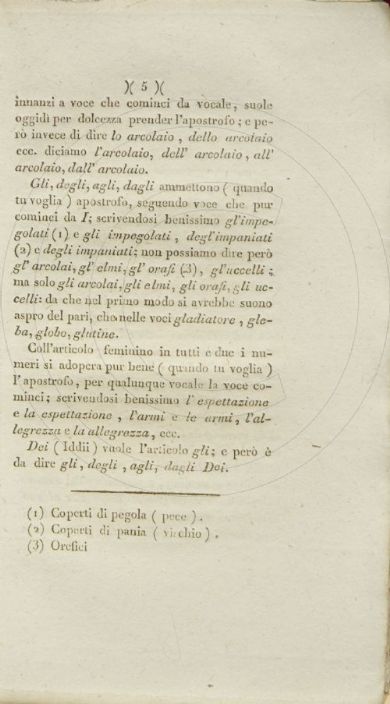 )( 5 )(
innanzi a voce che cominci da vocale, suole
oggidì per dolcezza prender l'apostrofo; e pe-
rò invece di dire lo arcolaio, dello arcolaio
ecc. diciamo l'arcolaio, dell' arcolaio, all'
arcolaio, dall' arcolaio.
Gli, degli, agli, dagli ammettono ( quando
tu voglia ) apostrofo, seguendo voce che pur
cominci da I; scrivendosi benissimo gl'impe-
golati (1) e gli impegolati, degl'impaniati
(2) e degli impaniati; non possiamo dire però
gl' arcolai, gl' elmi, gl' orafi (3), gl'uccelli;
ma solo gli arcolai, gli elmi, gli orafi, gli uc-
celli: da che nel primo modo si avrebbe suono
aspro del pari, che nelle voci gladiatore, gle-
ba, globo, glutine.
Coll'articolo feminino in tutti e due i nu-
meri si adopera pur bene ( quando tu voglia )
l'apostrofo, per qualunque vocale la voce co-
minci; scrivendosi benissimo l' espettazione
e la espettazione, l'armi e le armi, l'al-
legrezza e la allegrezza, ecc.
Dei ( Iddii ) vuole l'articolo gli; e però è
da dire gli, degli, agli, dagli Dei.
(1) Coperti di pegola ( pece ).
(2) Coperti di pania ( vischio ).
(3) Orefici